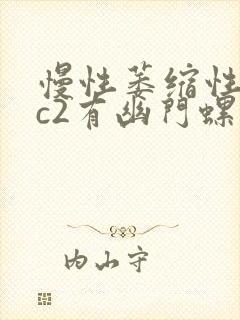 慢性萎缩性
c2有幽門螺
内山守